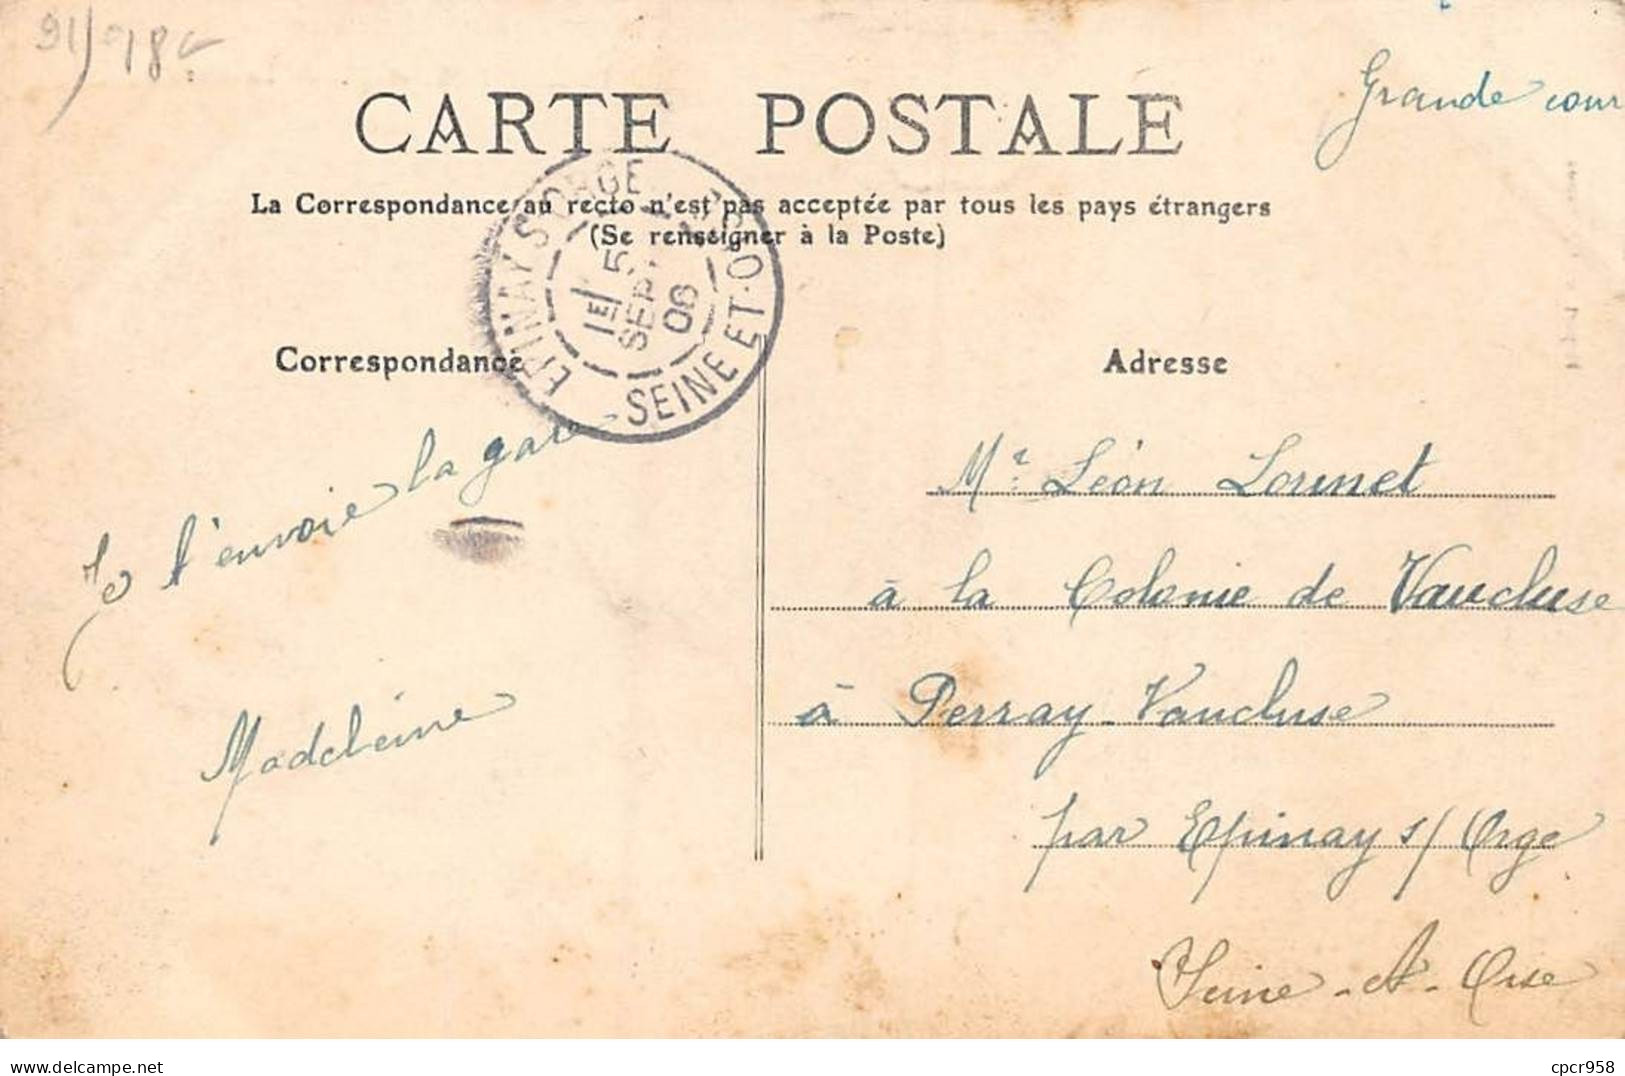 91/98
Grande cour
CARTE POSTALE
La Correspondance au recto n'est pas acceptée par tous les pays étrangers
(Se renseigner à la Poste)
EPINAY S ORGE
1E 5
SEPT
08
SEINE ET-OISE
Correspondance
Adresse
Je t'envoie la gare
Madeleine
Mr. Léon Lounet
à la Colonie de Vaucluse
à Perray-Vaucluse
par Epinay s/ Orge
Seine-et-Oise
delcampe.net
cpcr958